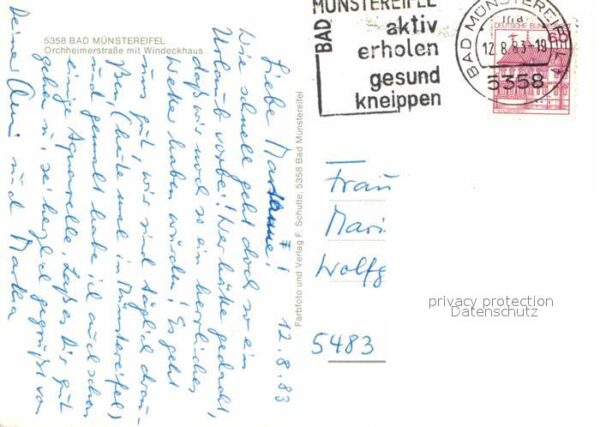 5358 BAD MÜNSTEREIFEL
Orchheimerstraße mit Windeckhaus
12.8.83
Liebe Marianne!
Wie schnell geht doch so ein
Urlaub vorbei! Wer hätte gedacht,
daß wir mal so ein herrliches
Wetter haben würden! Es geht
uns gut, wir sind täglich drau-
ßen, (heute mal in Münstereifel)
und gemalt habe ich auch schon
einige Aquarelle. Laß es Dir gut
gehn u. sei herzlich gegrüßt von
Deine Ami und Martha
Farbfoto und Verlag F. Schulte, 5358 Bad Münstereifel
BAD
MÜNSTEREIFEL
aktiv
erholen
gesund
kneippen
BAD MÜNSTEREIFEL
12.8.83-19
5358
DEUTSCHE BUNDES
60
Frau
Mari
Wolfg
5483
privacy protection
Datenschutz